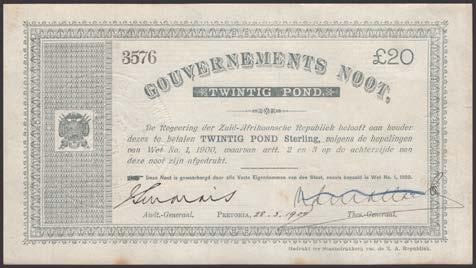 3576
£20
GOUVERNEMENTS NOOT,
TWINTIG POND.
De Regeering der Zuid-Afrikaansche Republiek belooft aan houder
dezes te betalen TWINTIG POND Sterling, volgens de bepalingen
van Wet No. 1, 1900, waarvan artt. 2 en 3 op de achterzijde van
deze noot zijn afgedrukt.
Deze Noot is gewaarborgd door alle Vaste Eigendommen van den Staat, zooals bepaald in Wet No. 1, 1900.
Audt.-Generaal.
PRETORIA, 28.5.1900
Thes.-Generaal.
Gedrukt ter Staatsdrukkerij van de Z. A. Republiek.